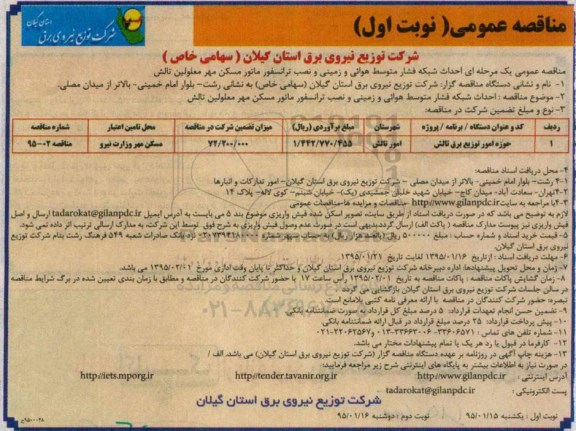 مناقصه عمومی( نوبت اول)
استان گیلان
شرکت توزیع نیروی برق
شرکت توزیع نیروی برق استان گیلان ( سهامی خاص )
مناقصه عمومی یک مرحله ای احداث شبکه فشار متوسط هوائی و زمینی و نصب ترانسفور ماتور مسکن مهر معلولین تالش
۱- نام و نشانی دستگاه مناقصه گزار: شرکت توزیع نیروی برق استان گیلان (سهامی خاص) به نشانی رشت- بلوار امام خمینی- بالاتر از میدان مصلی.
۲- موضوع مناقصه : احداث شبکه فشار متوسط هوائی و زمینی و نصب ترانسفور ماتور مسکن مهر معلولین تالش
۳- نوع و مبلغ تضمین شرکت در مناقصه:
ردیف کد و عنوان دستگاه / برنامه / پروژه شهرستان مبلغ برآوردی (ریال) میزان تضمین شرکت در مناقصه محل تامین اعتبار شماره مناقصه
۱ حوزه امور توزیع برق تالش امور تالش ۱/۴۴۲/۷۷۰/۴۵۵ ۷۲/۲۰۰/۰۰۰ مسکن مهر وزارت نیرو مناقصه ۰۲-۹۵
۴- محل دریافت اسناد مناقصه:
۴-۱ رشت- بلوار امام خمینی- بالاتر از میدان مصلی - شرکت توزیع نیروی برق استان گیلان- امور تدارکات و انبارها
۴-۲تهران- سعادت آباد- میدان کاج- خیابان شهید خلبان جمشیدی (یک)- خیابان شبنم- کوی لاله- پلاک ۱۴
۴-۳با مراجعه به سایت http//www.gilanpdc.ir -مناقصات و مزایده ها-مناقصات عمومی
لازم به توضیحی می باشد که در صورت دریافت اسناد از طریق سایت، تصویر اسکن شده فیش واریزی موضوع بند ۵ می بایست به آدرس ایمیل tadarokat@gilanpdc.ir ارسال و اصل
فیش واریزی نیز پیوست مدارک مناقصه ( پاکت الف) ارسال گردد.بدیهی است در صورت عدم وصول فیش واریزی به شرح فوق توسط این شرکت، به مدارک ارسالی ترتیب اثر داده نمی شود.
نیروی برق استان گیلان.
۶- مهلت دریافت اسناد : از تاریخ ۱۳۹۵/۰۱/۱۶ لغایت تاریخ ۱۳۹۵/۰۱/۲۱
۷- زمان و محل تحویل پیشنهادها: اداره دبیرخانه شرکت توزیع نیروی برق استان گیلان و حداکثر تا پایان وقت اداری مورخ ۱۳۹۵/۰۲/۰۱ می باشد.
۸- زمان گشایش پاکات مناقصه : پاکات مناقصه به تاریخ ۱۳۹۵/۰۲/۰۱ رأس ساعت ۱۷ با حضور شرکت کنندگان در مناقصه و مطابق با زمان بندی تعیین شده در برگ شرایط مناقصه
در سالن جلسات شرکت توزیع نیروی برق استان گیلان بازگشایی می گردد.
تبصره: حضور شرکت کنندگان در مناقصه با ارائه معرفی نامه کتبی بلامانع است.
۹- تضمین حسن انجام تعهدات قرارداد: ۵ درصد مبلغ کل قرارداد به صورت ضمانتنامه بانکی.
۱۰- پیش پرداخت قرارداد: ۲۵ درصد مبلغ قرارداد در قبال ارائه ضمانتنامه بانکی
۱۲- کارفرما در قبول یا رد هر یک یا تمام پیشنهادات مختار می باشد.
۱۳- هزینه چاپ آگهی در روزنامه بر عهده دستگاه مناقصه گزار (شرکت توزیع نیروی برق استان گیلان) می باشد.
در صورت نیاز به اطلاعات بیشتر به پایگاه های اینترنتی شرح زیر مراجعه فرمایید:
آدرس اینترنتی : http//www.gilanpdc.ir http//tender.tavanir.org.ir http//iets.mporg.ir
پست الکترونیکی : tadarokat@gilanpdc.ir
شرکت توزیع نیروی برق استان گیلان
نوبت اول : یکشنبه ۹۵/۰۱/۱۵ نوبت دوم : دوشنبه ۹۵/۰۱/۱۶